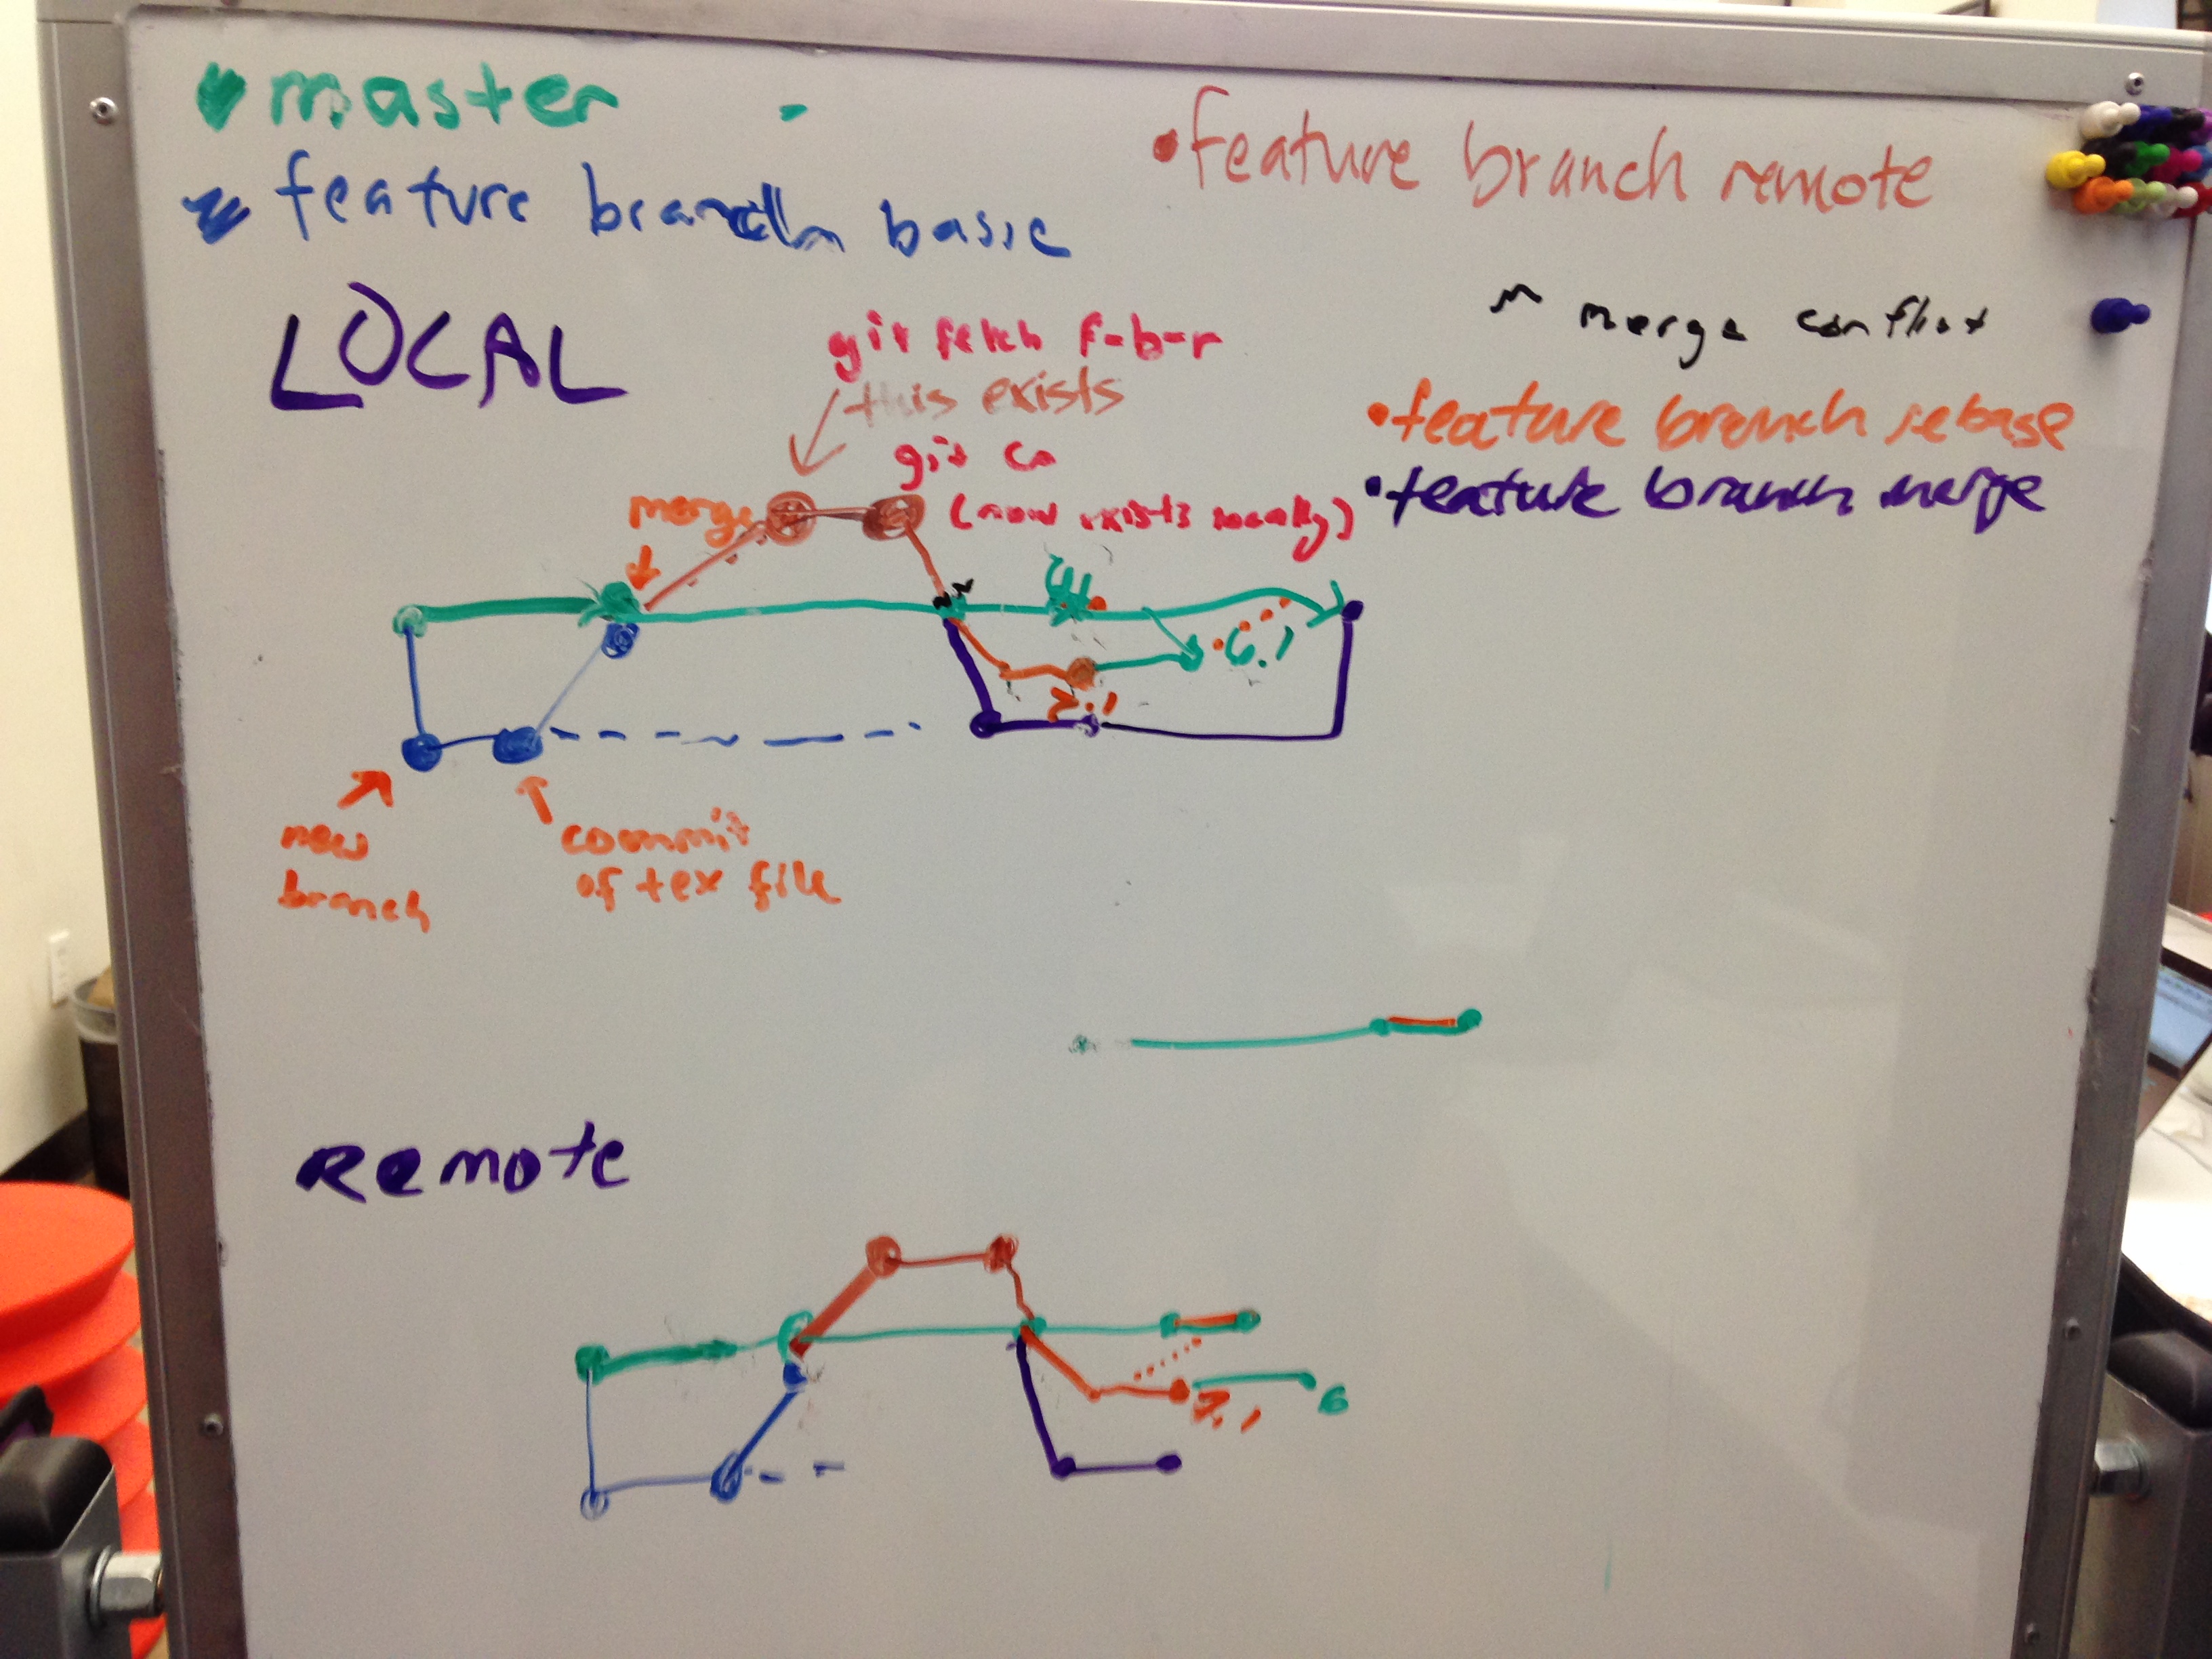 master
feature branch basic
feature branch remote
LOCAL
merge conflict
feature branch rebase
feature branch merge
git fetch f-b-r
this exists
git co
(now exists locally)
merge
6.1
7.1
new
branch
commit
of tex file
Remote
7.1
6